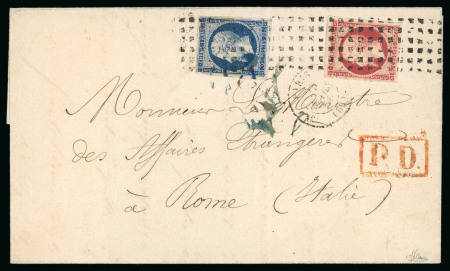 Monsieur le Ministre
des Affaires Etrangères
à Rome (Italie)
P.D.